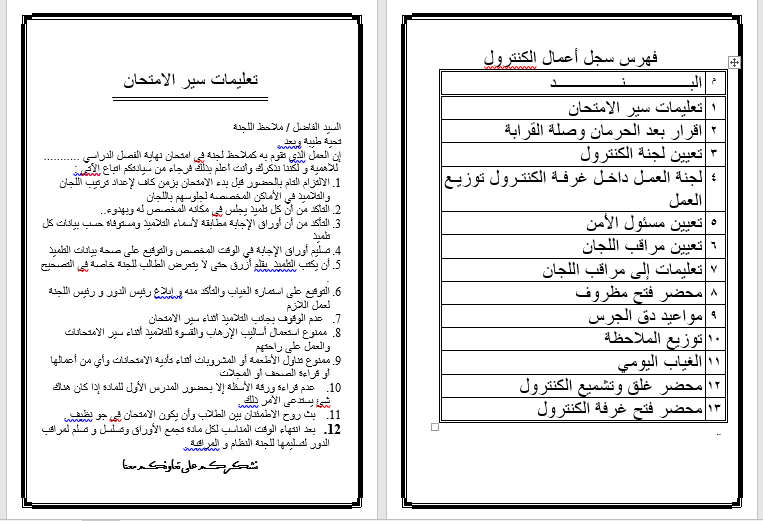 فهرس سجل أعمال الكنترول
م البـــــــــنـــــــــد
١ تعليمات سير الامتحان
٢ اقرار بعد الحرمان وصلة القرابة
٣ تعيين لجنة الكنترول
٤ لجنة العمل داخل غرفة الكنترول توزيع
العمل
٥ تعيين مسئول الأمن
٦ تعيين مراقب اللجان
٧ تعليمات إلى مراقب اللجان
٨ محضر فتح مظروف
٩ مواعيد دق الجرس
١٠ توزيع الملاحظة
١١ الغياب اليومي
١٢ محضر غلق وتشميع الكنترول
١٣ محضر فتح غرفة الكنترول
تعليمات سير الامتحان
السيد الفاضل / ملاحظ اللجنة
تحية طيبة وبعد
إن العمل الذي تقوم به كملاحظ لجنة في امتحان نهاية الفصل الدراسي ...........
للاهمية و لكننا نذكرك وأنت أعلم بذلك فرجاء من سيادتكم اتباع الآتي :
1. الالتزام التام بالحضور قبل بدء الامتحان بزمن كاف لإعداد ترتيب اللجان
والتلاميذ في الأماكن المخصصة لجلوسهم باللجان
2. التأكد من أن كل تلميذ يجلس في مكانه المخصص له وبهدوء..
3. التأكد من أن أوراق الإجابة مطابقة لأسماء التلاميذ ومستوفاة حسب بيانات كل
تلميذ
4. تسليم أوراق الإجابة في الوقت المخصص والتوقيع على صحة بيانات التلميذ
5. أن يكتب التلميذ بقلم أزرق حتى لا يتعرض الطالب للجنة خاصة في التصحيح
.
6. التوقيع على استمارة الغياب والتأكد منه و إبلاغ رئيس الدور و رئيس اللجنة
لعمل اللازم
7. عدم الوقوف بجانب التلاميذ أثناء سير الامتحان
8. ممنوع استعمال أساليب الإرهاب والقسوة للتلاميذ أثناء سير الامتحانات
والعمل على راحتهم
9. ممنوع تناول الأطعمة أو المشروبات أثناء تأدية الامتحانات وأي من أعمالها
أو قراءة الصحف أو المجلات
10. عدم قراءة ورقة الأسئلة إلا بحضور المدرس الأول للمادة إذا كان هناك
شئ يستدعى الأمر ذلك
11. بث روح الاطمئنان بين الطلاب وأن يكون الامتحان في جو نظيف
12. بعد انتهاء الوقت المناسب لكل مادة تجمع الأوراق وتسلسل و تسلم لمراقب
الدور لتسليمها للجنة النظام و المراقبة
نشكركم على تعاونكم معنا